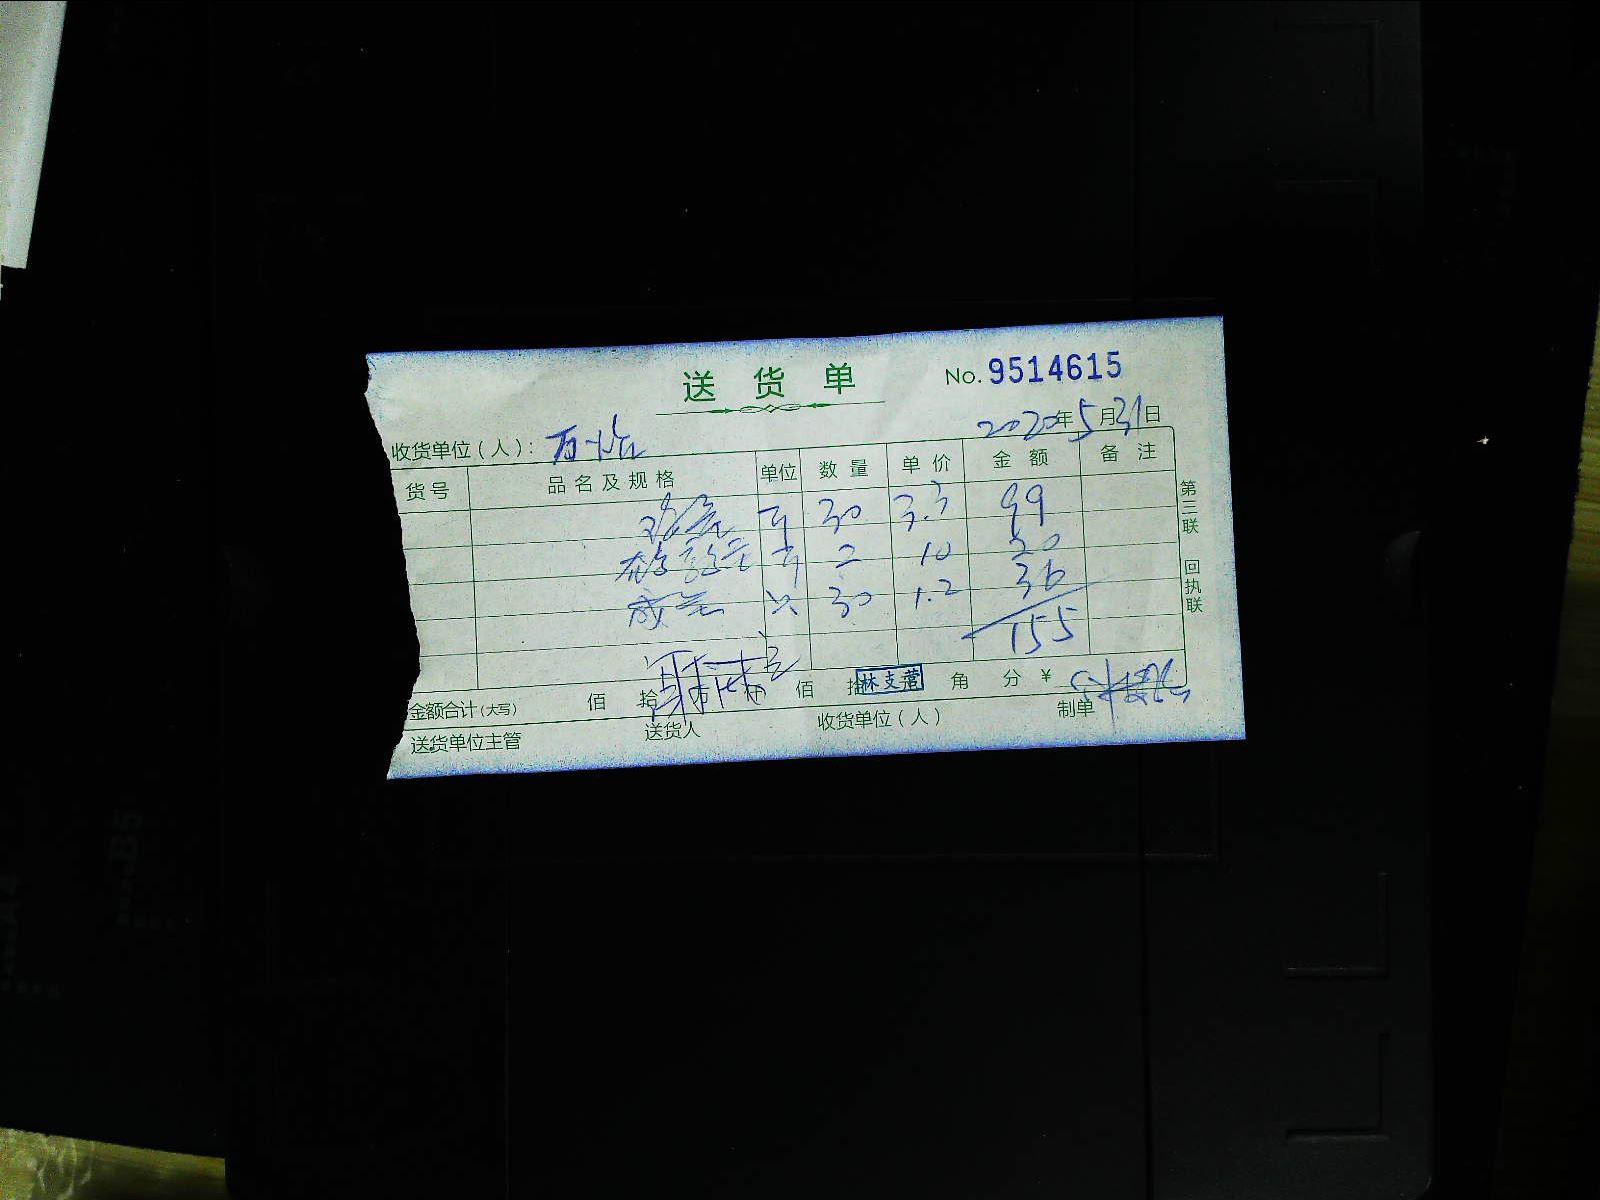 送货单 No. 9514615
2020年5月31日
收货单位(人):
货号 品名及规格 单位 数量 单价 金额 备注
鸡蛋 斤 30 3.3 99
斤 2 10 20
咸蛋 只 30 1.2 36
155
金额合计(大写) 佰 拾 万 仟 佰 拾 角 分 ¥
林支营
送货单位主管 送货人 收货单位(人) 制单
第三联 回执联